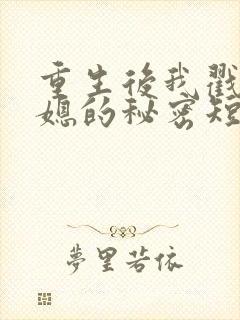 重生後我戳
媳的秘密短
夢里若依